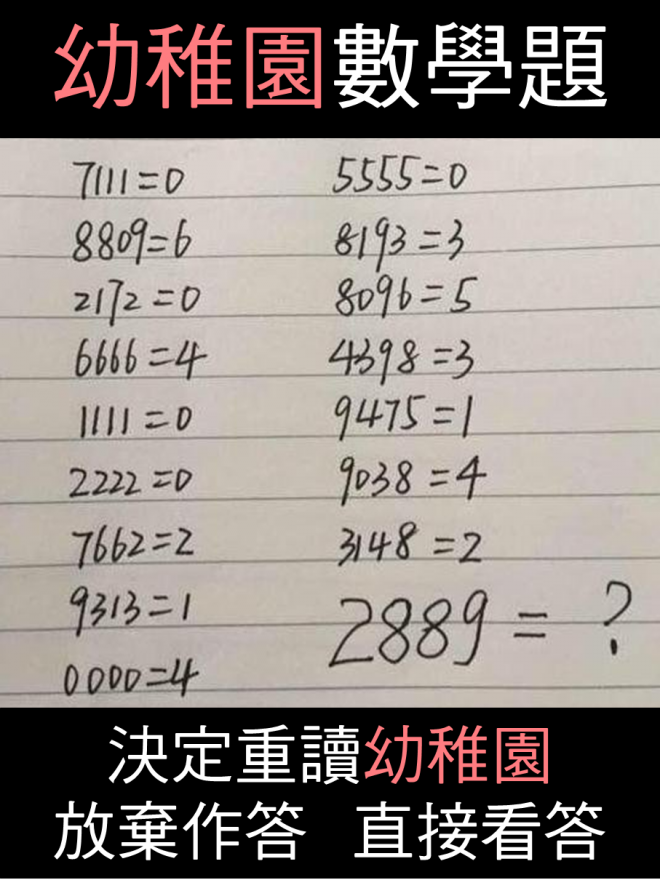 幼稚園數學題
7111=0
8809=6
2172=0
6666=4
1111=0
2222=0
7662=2
9313=1
0000=4
5555=0
8193=3
8096=5
4398=3
9475=1
9038=4
3148=2
2889=?
決定重讀幼稚園
放棄作答 直接看答